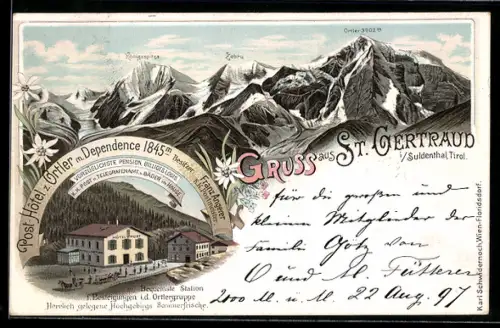 Königsspitze
Zebru
Ortler 3902 m
Gruss aus St. Gertraud
i/Suldenthal, Tirol.
Post-Hôtel z. Ortler m. Dependence 1845 m
Besitzer Franz Angerer
k.k. Postmeister
Vorzüglichste Pension, Billiges Logis
K.k. Post u. Telegrafenamt u. Bäder im Hause
Bequemste Station
f. Besteigungen i.d. Ortlergruppe
Herrlich gelegene Hochgebirgs Sommerfrische.
für die großen und
kleinen Mitglieder der
Familie Götz von
O und M. Fütterer
2000 M. ü. M. 22 Aug. 97
Karl Schwidernoch, Wien-Hanisdorf.